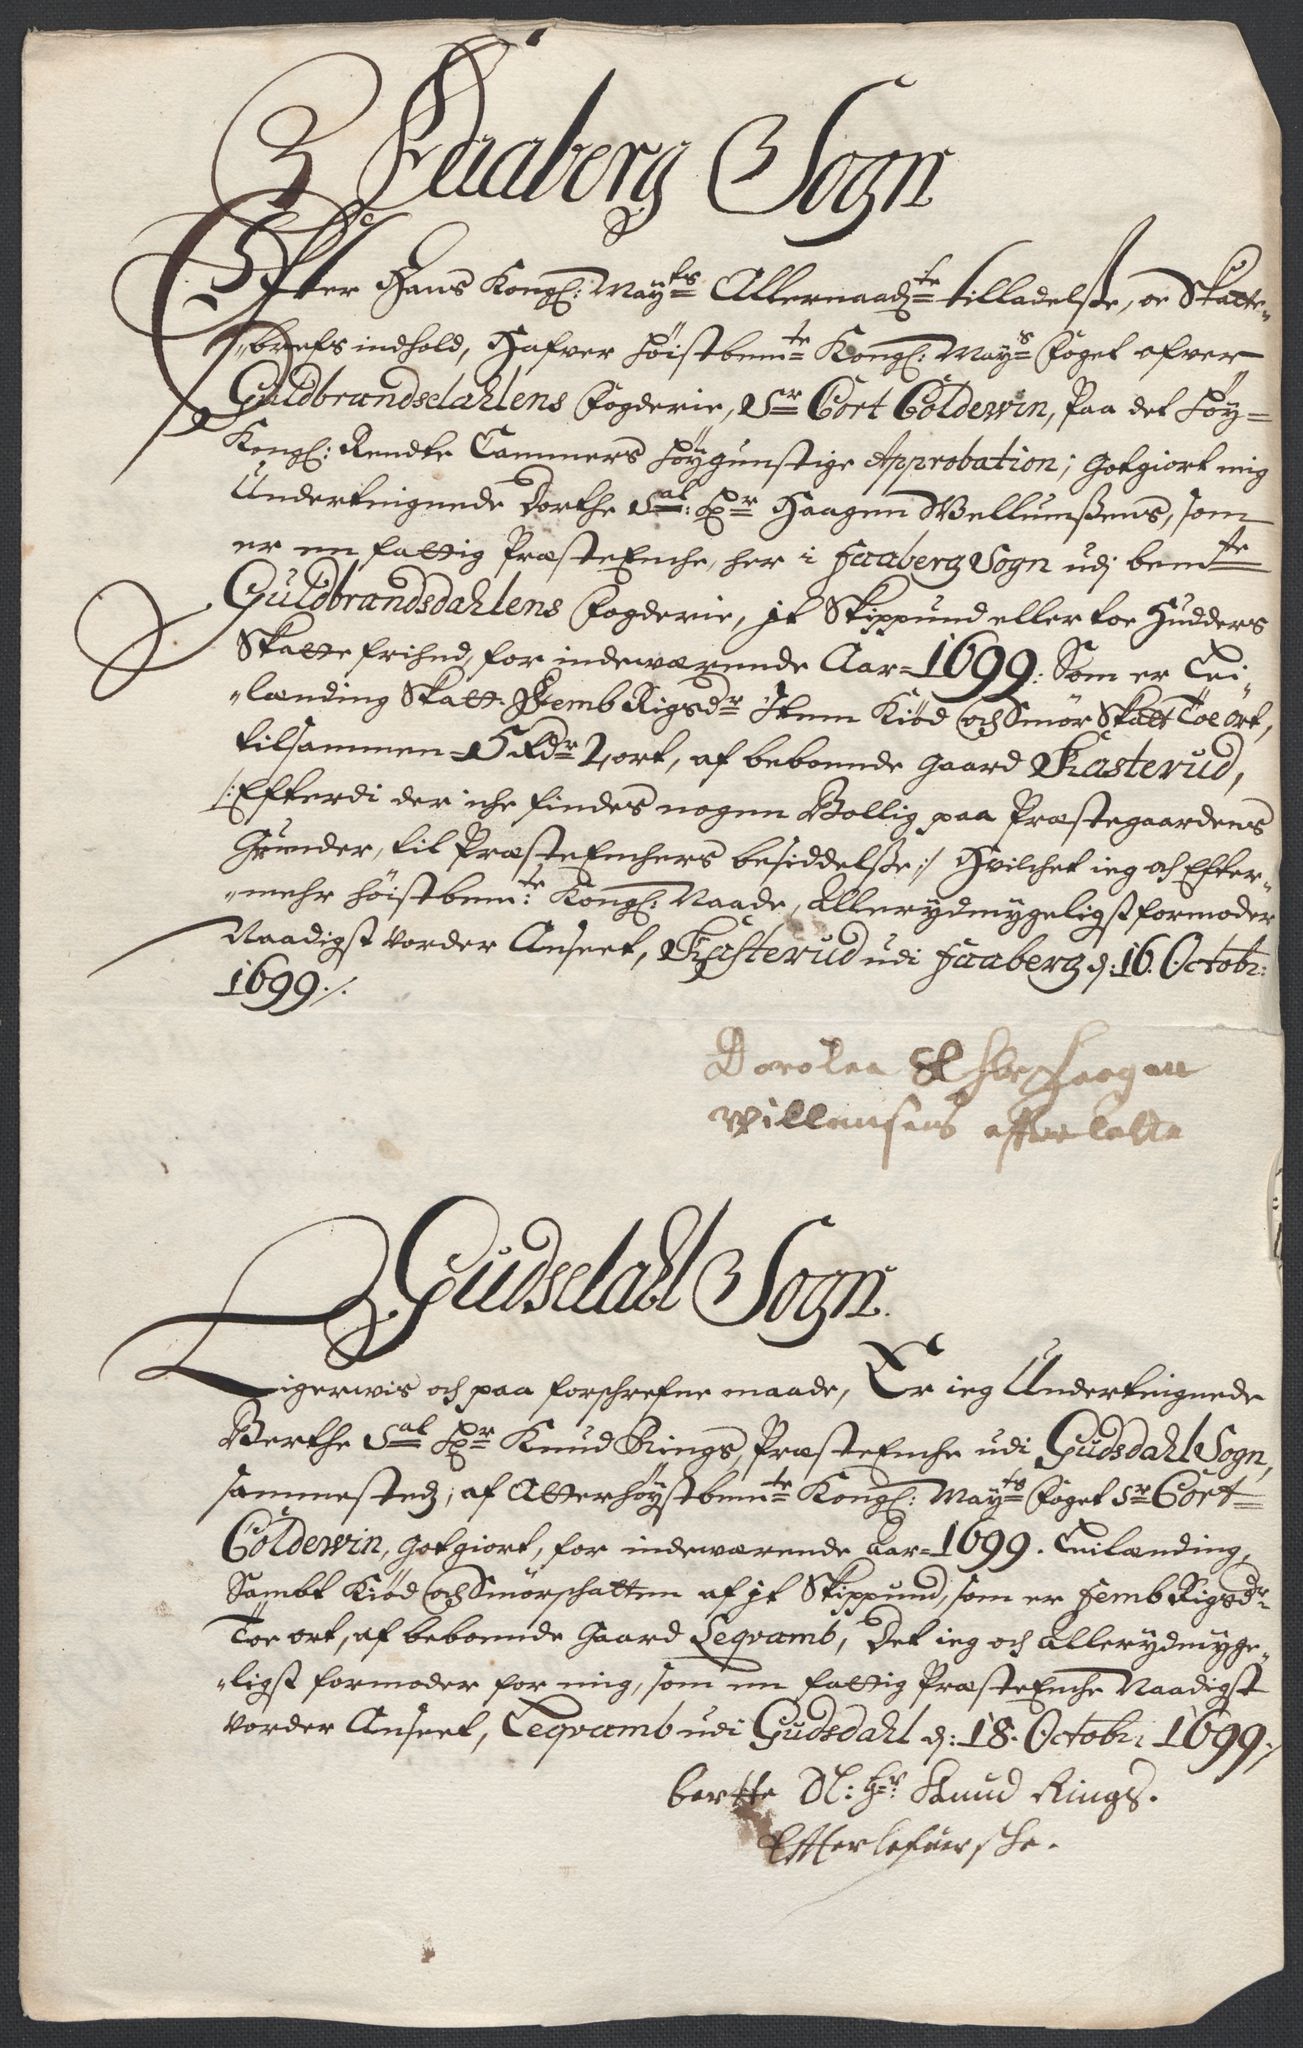 Faaberg Sogn
Efter Hans Kongl: Mayts Allernaadte tilladelsse, oc Skatte-
brefs indhold, Hafver höistbemte Kongl: Mays Foget ofver
Guldbrandsdahlens Fogderie, Sr Cort Coldewin, Paa det höy-
Kongl: Rendte Cammers höygunstige Approbation; Gotgiort mig
Undertegnede Dorthe Sal: Hr Haagen Wellumssens, som
er en fattig PræsteEnche, her i Faaberg Sogn udj bemte
Guldbrandsdahlens Fogderie, jt Skippund eller toe Hudders
Skattefrihed, for indeværende Aar=1699: Som er Tei-
lænding Skatt Femb Rigsdr Item Kiöd och Smör Skatt Töe ort,
tilsammen=5 Rdr 2 ort, af beboende gaard Kasterud,
/:Efterdi der iche findes nogen Bollig paa Præstegaardens
Grunder, til PræsteEnchers besiddelsse:/ Hvilchet ieg och Efter-
mehr höistbemte Kongl: Naade, Allerydmygeligst formoder
Naadigst vorder Anseet, Kasterud udi Faaberg d: 16. Octobr:
1699./.
Dorotea Sl Hr Haagen
Willumsens efterlatte
Gudsdahl Sogn.
Ligerwis och paa forschrefne maade, Er ieg Undertegnede
Berthe Sal Hr Knud Rings, PræsteEnche udi Gudsdahl Sogn,
sammestedz, af Atterhöystbemte Kongl: Mayts Foget Sr Cort
Coldewin, Gotgiort, for indeværende Aar=1699. Teilænding,
Sambt Kiöd och Smörschatten af jt Skippund, som er Femb Rigsdr
Töe ort, af beboende Gaard Leqvamb, Det ieg och allerydmyge-
ligst formoder for mig, som en fattig PræsteEnche Naadigst
vorder Anseet, Leqvamb udi Gudsdahl d: 18. Octobr: 1699./
bertte Sl: hr Knud Rings.
Efterlefuersche.